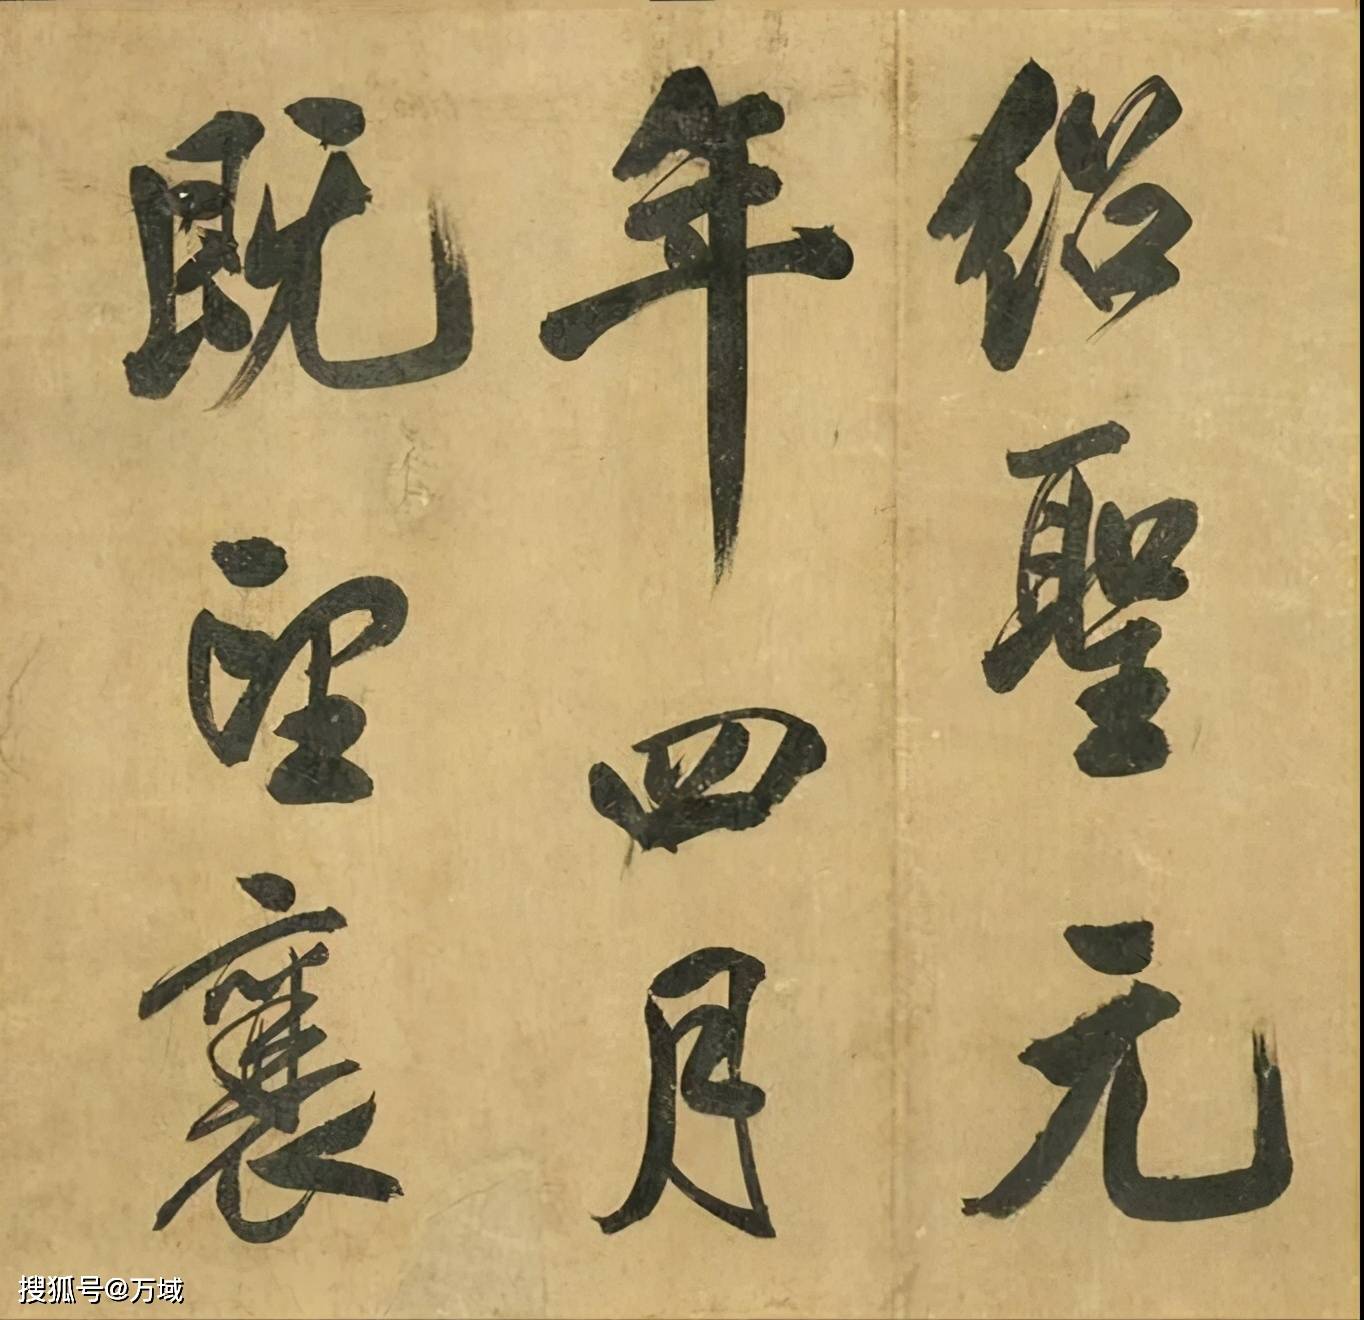 紹聖元
年四月
既望襄
搜狐号@万域